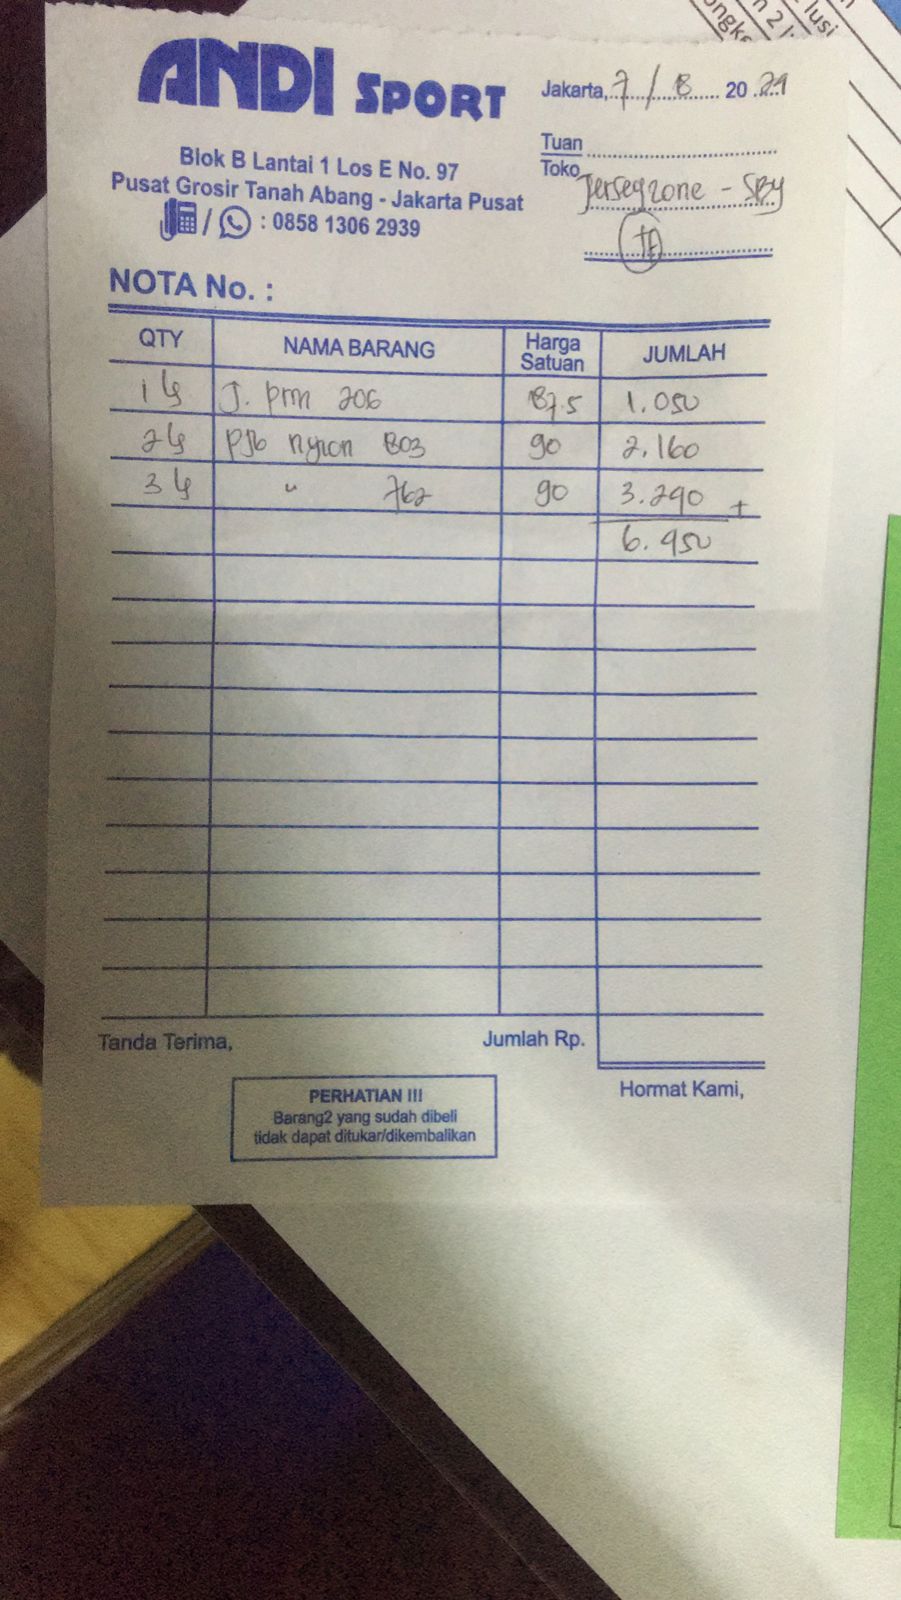 ANDI SPORT
Jakarta, 7 / 8 20 24
Blok B Lantai 1 Los E No. 97
Pusat Grosir Tanah Abang - Jakarta Pusat
/ : 0858 1306 2939
Tuan
Toko
Jerseyzone - SBY
NOTA No. :
QTY NAMA BARANG Harga Satuan JUMLAH
1 ls J. prm 206 87.5 1.050
2 ls 803 90 2.160
3 ls " 762 90 3.240 +
6.450
Tanda Terima, Jumlah Rp.
Hormat Kami,
PERHATIAN !!!
Barang2 yang sudah dibeli
tidak dapat ditukar/dikembalikan
lusi